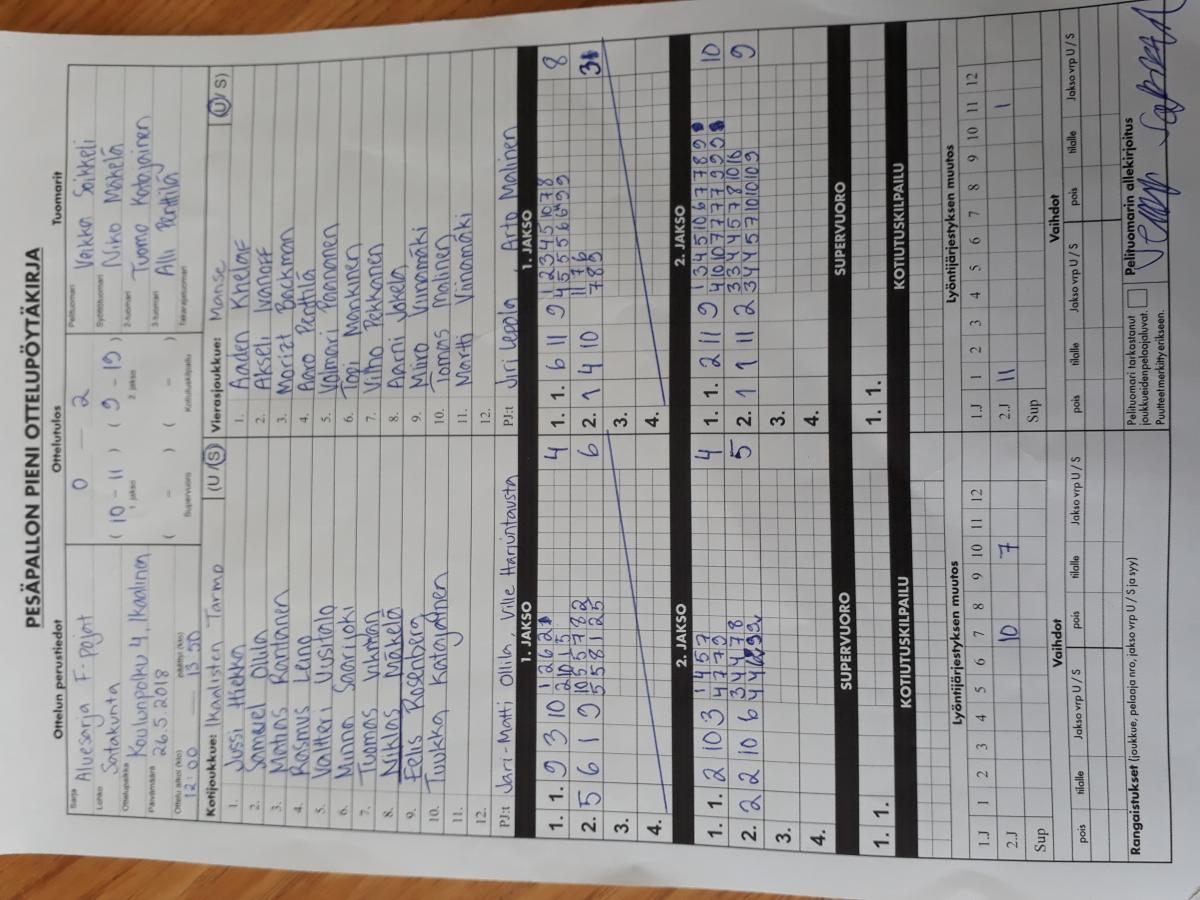 PESÄPALLON PIENI OTTELUPÖYTÄKIRJA
Ottelun perustiedot
Sarja Aluesarja F-pojat
Lohko Satakunta
Ottelupaikka Koulunpolku 4, Ikaalinen
Päivämäärä 26.5 2018
Ottelu alkoi (klo) 12:00 päättyi (klo) 13 50
Ottelutulos
0 — 2
(10 - 11) (9 - 19)
1. jakso 2. jakso
( - ) ( - )
Supervuoro Kotiutuskilpailu
Tuomarit
Pelituomari Veikko Saikkeli
Syöttötuomari Niko Mäkelä
2-tuomari Tuomo Katajainen
3-tuomari Alli Penttilä
Takarajatuomari
Kotijoukkue: Ikaalisten Tarmo (U/S)
1. Jussi Hiekka
2. Samuel Ollila
3. Matias Rantanen
4. Rasmus Leino
5. Valtteri Uusitalo
6. Minna Saarijoki
7. Tuomas Vikman
8. Niklas Mäkelä
9. Eelis Rosenberg
10. Tuukka Katajainen
11.
12.
PJ:t Jari-Matti Ollila, Ville Harjuntausta
Vierasjoukkue: Manse (U/S)
1. Aaden Khelaf
2. Akseli Ivanoff
3. Marizt Backman
4. Aaro Penttilä
5. Valmari Paananen
6. Topi Mankinen
7. Vilho Pekkanen
8. Aarni Jokela
9. Miiro Viinamäki
10. Tomas Malinen
11. Martti Viinamäki
12.
PJ:t Jiri Leppälä, Arto Malinen
1. JAKSO
1. 1. 9 3 10 4
2. 5 6 1 9 6
3.
4.
1. JAKSO
1. 1. 6 11 9 8
2. 1 4 10 3
3.
4.
2. JAKSO
1. 1. 2 10 3 4
2. 2 2 10 6 5
3.
4.
2. JAKSO
1. 1. 2 11 9 10
2. 1 1 11 2 9
3.
4.
SUPERVUORO
1. 1.
SUPERVUORO
1. 1.
KOTIUTUSKILPAILU
KOTIUTUSKILPAILU
Lyöntijärjestyksen muutos
1.J 1 2 3 4 5 6 7 8 9 10 11 12
2.J 10 7
Sup
Lyöntijärjestyksen muutos
1.J 1 2 3 4 5 6 7 8 9 10 11 12
2.J 11 1
Sup
Vaihdot
pois tilalle Jakso vrp U / S pois tilalle Jakso vrp U / S
Vaihdot
pois tilalle Jakso vrp U / S pois tilalle Jakso vrp U / S
Rangaistukset (joukkue, pelaaja nro, jakso, vrp U / S ja syy)
Pelituomari tarkastanut joukkueiden pelaajaluvat.
Puutteet merkitty erikseen.
Pelituomarin allekirjoitus